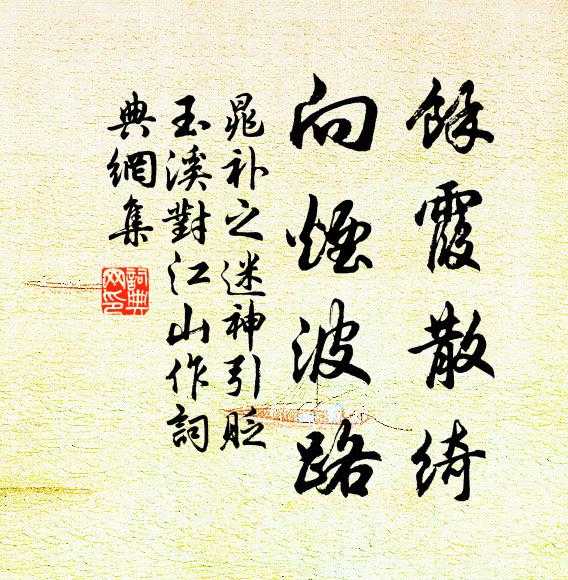 餘霞散綺
向煙波路
晁补之迷神引貶
玉溪對江山作詞
典網集
詞典网印